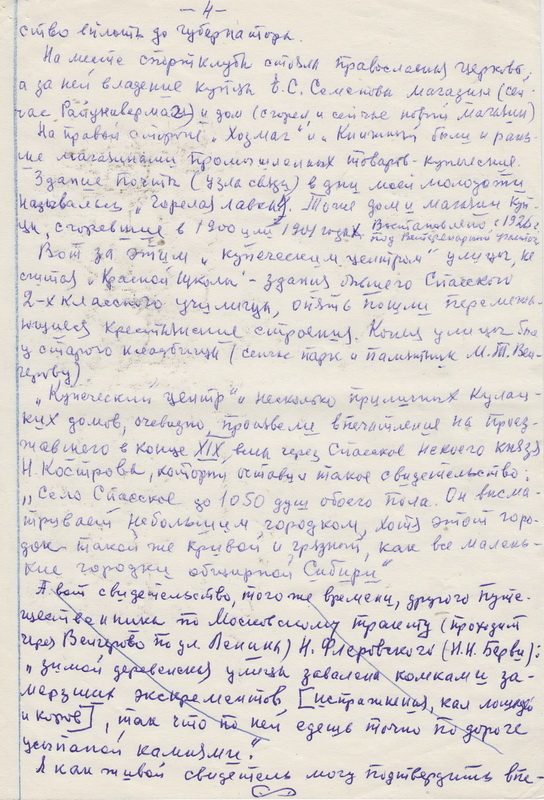 — 4 —
ство вплоть до губернатора.
На месте спортклуба стояла православная церковь,
а за ней владение купца В.С. Семенова магазин (сей-
час Райунивермаг) и дом (сгорел и сейчас новый магазин)
На правой стороне „Хозмаг" и „Книжный были и рань-
ше магазинами промышленных товаров - купеческие.
Здание почты (узла связи) в дни моей молодости
называлась „Горелая лавка". Тоже дом и магазин куп-
ца, сгоревшие в 1900 или 1901 годах. Восстановлено с 1926 г.
под Ветеринарный участок
Вот за этим „купеческим центром" улицы, не
считая „Красной школы" - здания бывшего Спасского
2-х классного училища, опять пошли перемежа-
ющиеся крестьянские строения. Конец улицы был
у старого кладбища (сейчас парк и памятник М.Т. Вен-
герову)
„Купеческий центр" и несколько приличных кулац-
ких домов, очевидно, произвели впечатление на проез-
жавшего в конце XIX века через Спасское некоего князя
Н. Кострова, который оставил такое свидетельство:
„Село Спасское до 1050 душ обоего пола. Он высма-
тривает небольшим городком, хотя этот горо-
док такой же кривой и грязный, как все малень-
кие городки обширной Сибири"
А вот свидетельство, того же времени, другого путе-
шественника по Московскому тракту (проходит
через Венгерово по ул. Ленина) Н. Флеровского (Н.Н. Берви):
„зимой деревенская улица завалена комками за-
мерзших экскрементов [испражнения, кал лошадей
и коров], так что по ней едешь точно по дороге
усыпаной камнями."
А как живой свидетель могу подтвердить впе-